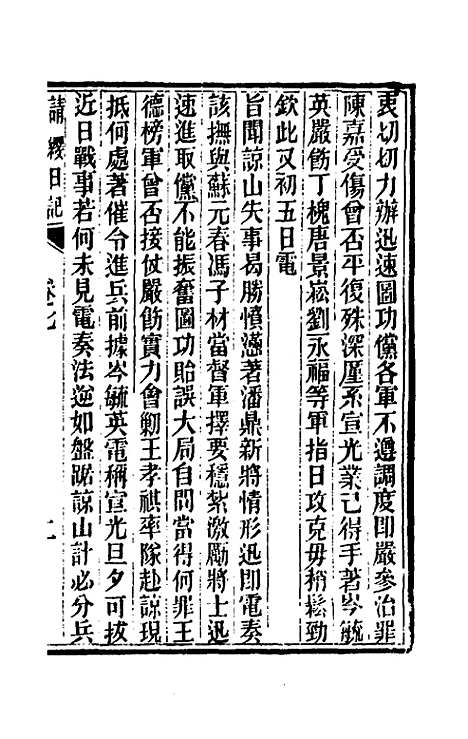 衷切切力辦迅速圖功儻各軍不遵調度即嚴參治罪
陳嘉受傷曾否平復殊深廑系宣光業已得手著岑毓
英嚴飭丁槐唐景崧劉永福等軍指日攻克毋稍鬆勁
欽此又初五日電
旨聞諒山失事曷勝憤懣著潘鼎新將情形迅即電奏
該撫與蘇元春馮子材當督軍擇要穩紮激勵將士迅
速進取儻不能振奮圖功貽誤大局自問當得何罪王
德榜軍曾否接仗嚴飭實力會勦王孝祺率隊赴諒現
抵何處著催令進兵前據岑毓英電稱宣光旦夕可拔
近日戰事若何未見電奏法逆如盤踞諒山計必分兵
請纓日記 卷七 二